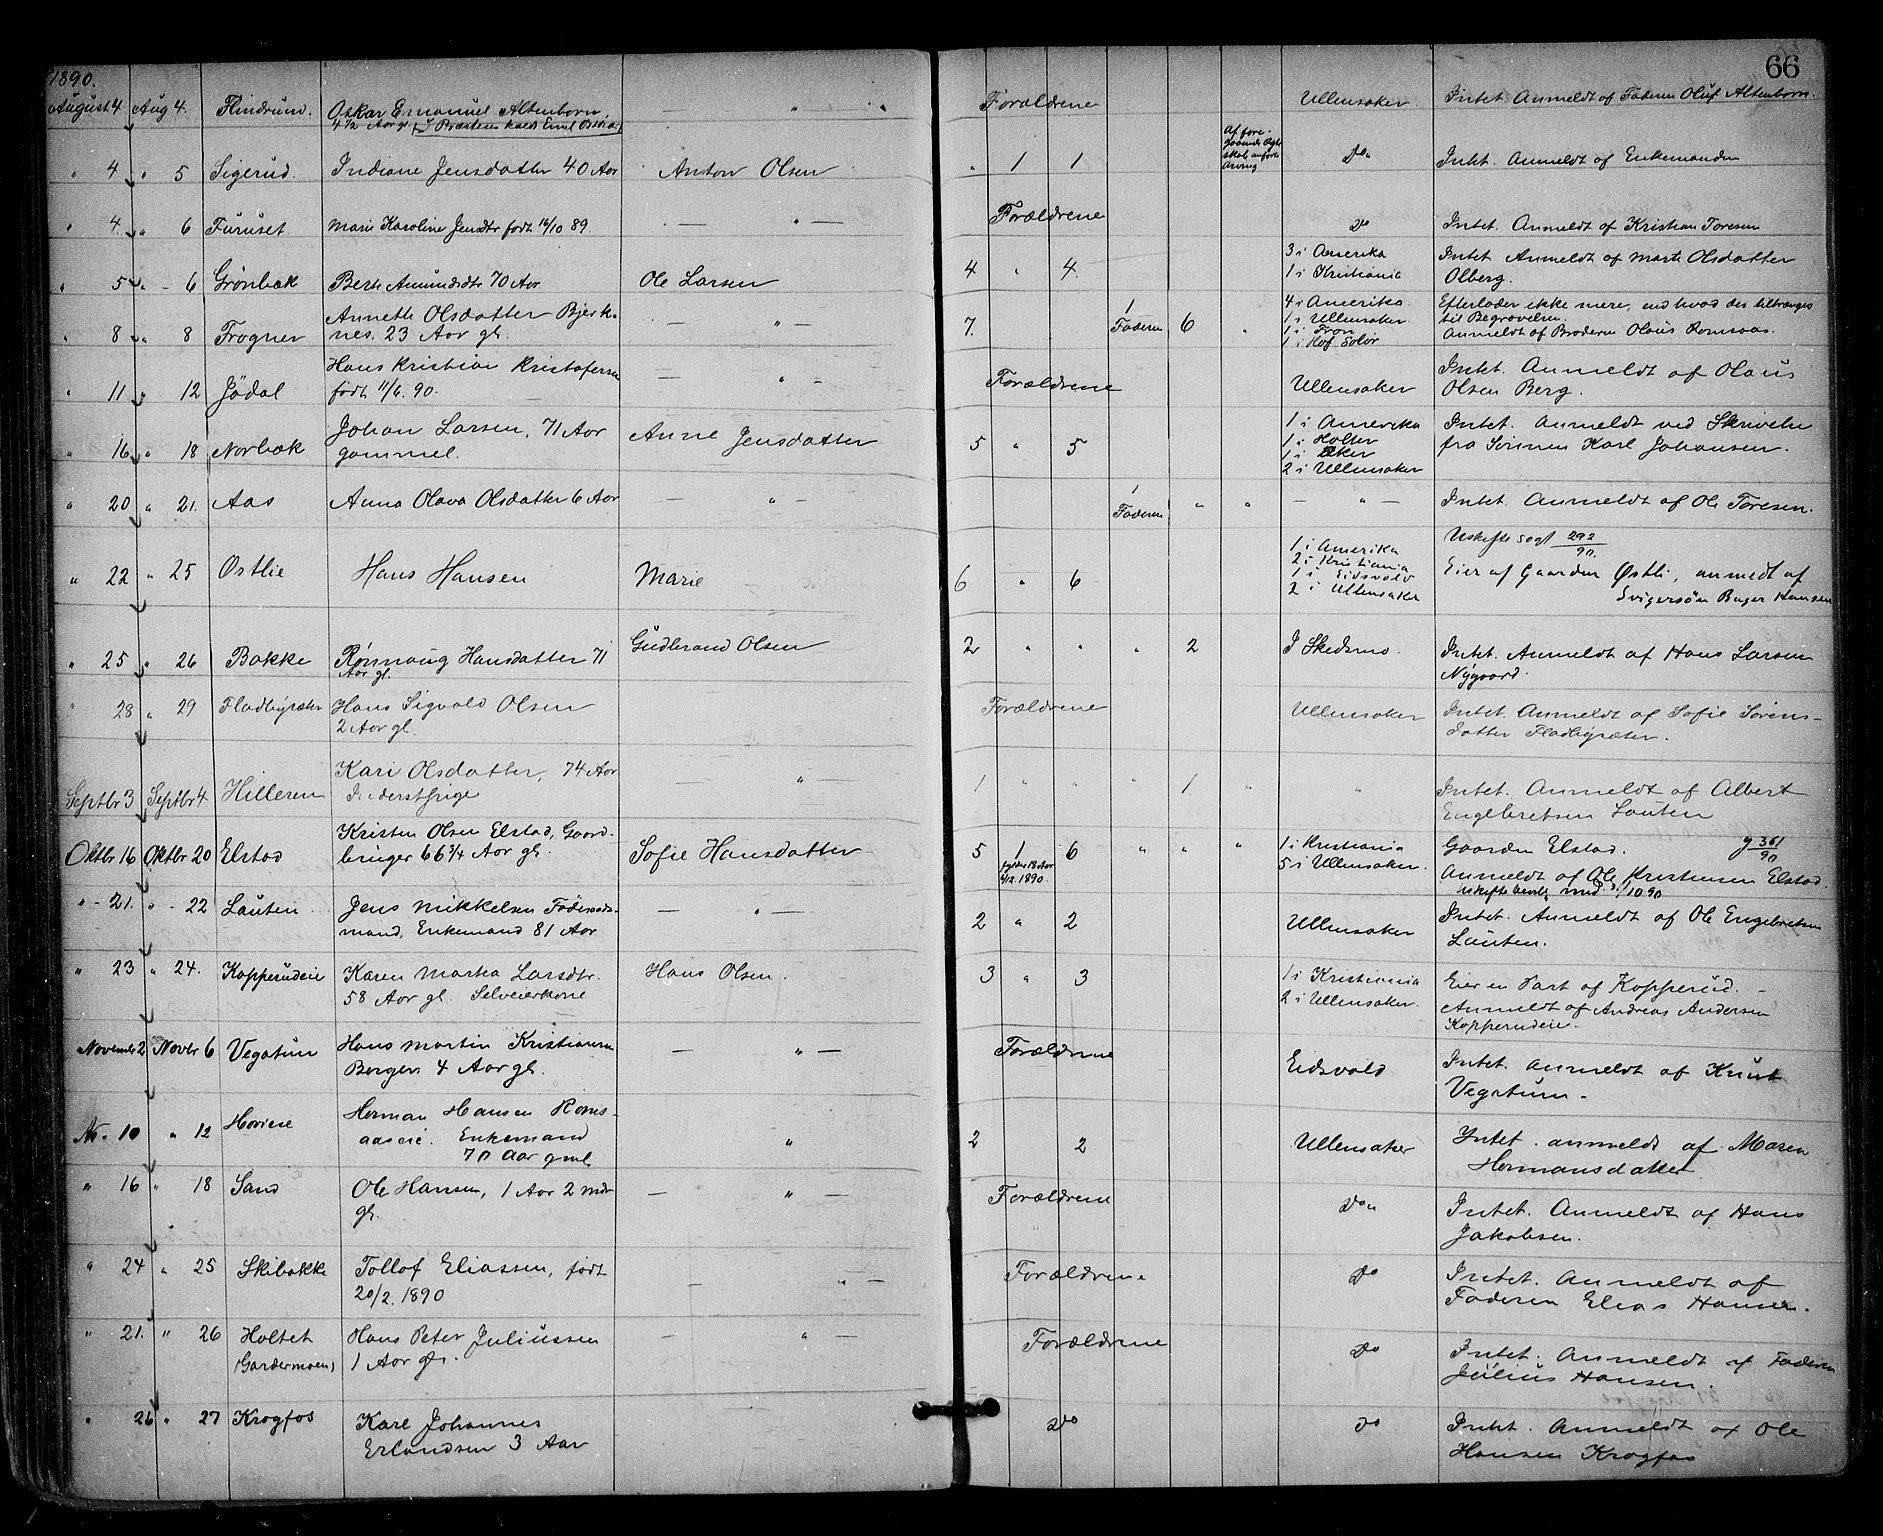 1890.
66
August 4 Aug 4. Flindrund. Oskar Emanuel Altenborn — " Forældrene Ullensaker Intet Anmeldt af Faderen Oluf Altenborn.
4½ Aar gl.
" 4 " 5 Sigerud. Indiane Jensdatter 40 Aar Anton Olsen " 1 1 Do Intet. Anmeldt af Enkemanden
" 4. " 6 Furuset Marie Karoline Jensdtr født 16/10 89. — " — Forældrene Do Intet. Anmeldt af Kristian Toresen
" 5 " 6 Grønbæk Berte Amundsdtr 70 Aar Ole Larsen 4 " 4. 3 i Amerika Intet Anmeldt af Marte Olsdatter
1 i Kristiania Olberg.
" 8 " 8 Frogner Annette Olsdatter Bjerk- — " — 7. 1 Faderen 6 " 4 i Amerika Efterlader ikke mere, end hvad der tiltrænges
nes. 23 Aar gl. 1 i Ullensaker til Begravelsen.
1 i Fron Anmeldt af Broderen Olaus Romsaas.
1 i Hof Solør
" 11 " 12 Jødal Hans Kristian Kristofersen — " — Forældrene Ullensaker Intet. Anmeldt af Olaus
født 11/6. 90. Olsen Berg.
" 16 " 18 Norbæk Johan Larsen, 71 Aar Anne Jensdatter 5 " 5 1 i Amerika Intet. Anmeldt ved Skrivelse
gammel. 1 i Holter fra Sønnen Karl Johansen.
1 i Aker
2 i Ullensaker
" 20 " 21. Aas Anna Olava Olsdatter 6 Aar — " — 1 Faderen " " — " — Intet. Anmeldt af Ole Toresen.
" 22 " 25 Østlie Hans Hansen Marie 6 " 6 1 i Amerika Uskifte sogt 292/90.
2 i Kristiania Eier af Gaarden Østli, anmedt af
1 i Eidsvold Svigersøn Hansen
2 i Ullensaker
" 25 " 26 Bakke Rønnaug Hansdatter 71 Gudbrand Olsen 2 " " " 2 I Skedsmo. Intet. Anmeldt af Hans Larsen
Aar gl. Nygaard.
" 28 " 29 Fladbygræter Hans Sigvald Olsen Forældrene Ullensaker Intet. Anmeldt af Sofie Sørens-
2 Aar gl. datter Fladbygræter.
Septbr 3 Septbr 4 Hilleren Kari Olsdatter, 74 Aar — " 1 " " " 1. " " Intet. Anmeldt af Albert
Engebretsen Lauten
Oktbr 16 Oktbr 20 Elstad Kristen Olsen Elstad, Gaard- Sofie Hansdatter 5 1 6 " " " 1 i Kristiania Gaarden Elstad. 361/90
bruger 66¾ Aar gl. fylder 18 Aar 5 i Ullensaker. Anmeldt af Ole Kristensen Elstad.
6/12. 1890.
" - 21. " - 22 Lauten Jens Mikkelsen Føderaads- — " — 2 " 2 Ullensaker Intet. Anmeldt af Ole Engebretsen
mand, Enkemand 81 Aar Lauten.
" 23 " 24. Kopperudeie Karen Marka Larsdtr. Hans Olsen. 3 " 3 1 i Kristiania Eier en Part af Kopperud.
58 Aar gl. Selveierkone 2 i Ullensaker. Anmeldt af Andreas Andersen
Kopperudeie.
November 2 Novbr 6 Vegatun Hans Martin Kristiansen — " — Forældrene Eidsvold Intet. Anmeldt af Knut
Bergen 4 Aar gl. Vegatun.
Nr. 10 " 12 Hovieie Herman Hansen Roms- " 2 2 Ullensaker Intet. anmeldt af Maren
aaseie. Enkemand Hermansdatter
70 Aar gml
" 16 " 18 Sand Ole Hansen, 1 Aar 2 mdr — " — Forældrene Do Intet. Anmeldt af Hans
gl. Jakobsen.
" 24 " 25 Skibakke Tollof Eliassen, født — " — Forældrene Do Intet. Anmeldt af
20/2. 1890 Faderen Elias Hansen.
" 21. " 26 Holtet Hans Peter Juliussen — " — Forældrene Do Intet. Anmeldt af Faderen
(Gardermoen) 1 Aar gl. Julius Hansen.
" 26 " 27 Krogfos Karl Johannes Do Do Intet. Anmeldt af Ole
Erlandsen 3 Aar Hansen Krogfos